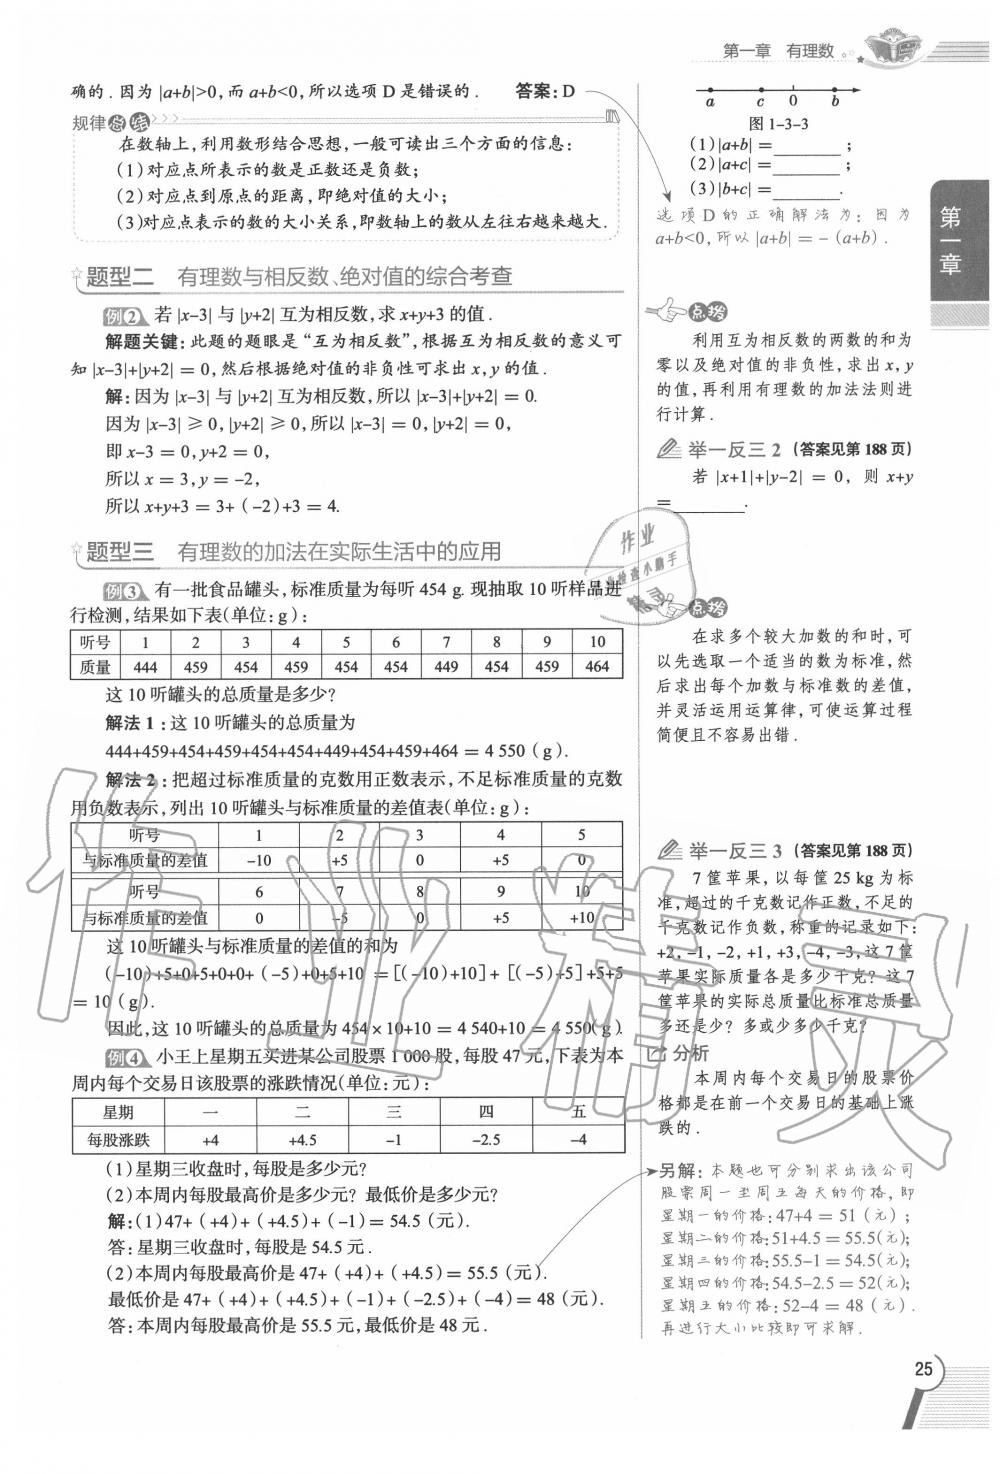 第一章 有理数
确的.因为|a+b|>0,而a+b<0,所以选项D是错误的. 答案:D
规律总结
在数轴上,利用数形结合思想,一般可读出三个方面的信息:
(1)对应点所表示的数是正数还是负数;
(2)对应点到原点的距离,即绝对值的大小;
(3)对应点表示的数的大小关系,即数轴上的数从左往右越来越大.
题型二 有理数与相反数、绝对值的综合考查
例2 若|x-3|与|y+2|互为相反数,求x+y+3的值.
解题关键:此题的题眼是“互为相反数”,根据互为相反数的意义可
知|x-3|+|y+2|=0,然后根据绝对值的非负性可求出x,y的值.
解:因为|x-3|与|y+2|互为相反数,所以|x-3|+|y+2|=0.
因为|x-3|≥0,|y+2|≥0,所以|x-3|=0,|y+2|=0,
即x-3=0,y+2=0,
所以x=3,y=-2,
所以x+y+3=3+(-2)+3=4.
题型三 有理数的加法在实际生活中的应用
例3 有一批食品罐头,标准质量为每听454 g.现抽取10听样品进
行检测,结果如下表(单位:g):
听号 1 2 3 4 5 6 7 8 9 10
质量 444 459 454 459 454 454 449 454 459 464
这10听罐头的总质量是多少?
解法1:这10听罐头的总质量为
444+459+454+459+454+454+449+454+459+464=4 550(g).
解法2:把超过标准质量的克数用正数表示,不足标准质量的克数
用负数表示,列出10听罐头与标准质量的差值表(单位:g):
听号 1 2 3 4 5
与标准质量的差值 -10 +5 0 +5 0
听号 6 7 8 9 10
与标准质量的差值 0 -5 0 +5 +10
这10听罐头与标准质量的差值的和为
(-10)+5+0+5+0+0+(-5)+0+5+10=[(-10)+10]+[(-5)+5]+5+5
=10(g).
因此,这10听罐头的总质量为454×10+10=4 540+10=4 550(g).
例4 小王上星期五买进某公司股票1 000股,每股47元,下表为本
周内每个交易日该股票的涨跌情况(单位:元):
星期 一 二 三 四 五
每股涨跌 +4 +4.5 -1 -2.5 -4
(1)星期三收盘时,每股是多少元?
(2)本周内每股最高价是多少元?最低价是多少元?
解:(1)47+(+4)+(+4.5)+(-1)=54.5(元).
答:星期三收盘时,每股是54.5元.
(2)本周内每股最高价是47+(+4)+(+4.5)=55.5(元).
最低价是47+(+4)+(+4.5)+(-1)+(-2.5)+(-4)=48(元).
答:本周内每股最高价是55.5元,最低价是48元.
a c 0 b
图1-3-3
(1)|a+b|=________;
(2)|a+c|=________;
(3)|b+c|=________.
选项D的正确解法为:因为
a+b<0,所以|a+b|=-(a+b).
点拨
利用互为相反数的两数的和为
零以及绝对值的非负性,求出x,y
的值,再利用有理数的加法法则进
行计算.
举一反三2 (答案见第188页)
若|x+1|+|y-2|=0,则x+y
=________.
点拨
在求多个较大加数的和时,可
以先选取一个适当的数为标准,然
后求出每个加数与标准数的差值,
并灵活运用运算律,可使运算过程
简便且不容易出错.
举一反三3 (答案见第188页)
7筐苹果,以每筐25 kg为标
准,超过的千克数记作正数,不足的
千克数记作负数,称重的记录如下:
+2,-1,-2,+1,+3,-4,-3,这7筐
苹果实际质量各是多少千克?这7
筐苹果的实际总质量比标准总质量
多还是少?多或少多少千克?
分析
本周内每个交易日的股票价
格都是在前一个交易日的基础上涨
跌的.
另解:本题也可分别求出该公司
股票周一至周五每天的价格,即
星期一的价格:47+4=51(元);
星期二的价格:51+4.5=55.5(元);
星期三的价格:55.5-1=54.5(元);
星期四的价格:54.5-2.5=52(元);
星期五的价格:52-4=48(元).
再进行大小比较即可求解.
第一章
25
作业精灵
作业
检查小助手